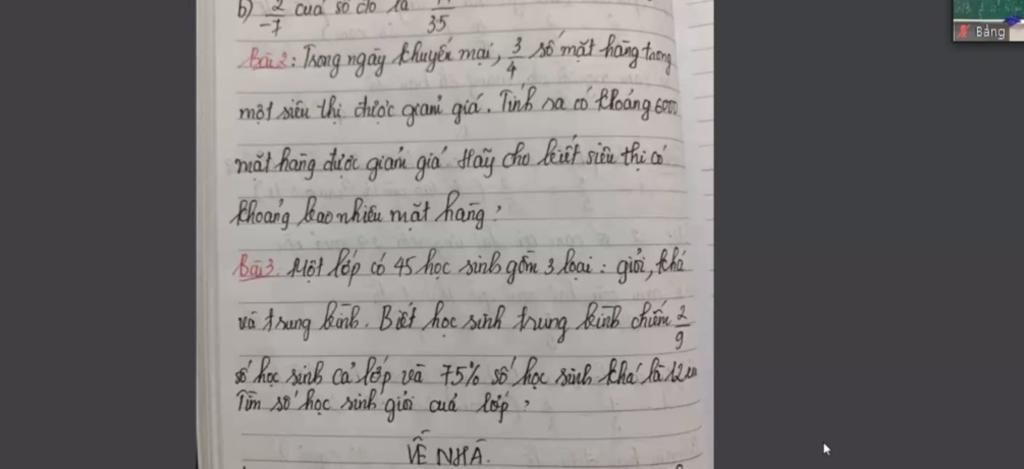 b) 2/-7 của số đó là 35
Bảng
Bài 2: Trong ngày khuyến mại, 3/4 số mặt hàng trong
một siêu thị được giảm giá. Tính ra có khoảng 6000
mặt hàng được giảm giá Hãy cho biết siêu thị có
khoảng bao nhiêu mặt hàng?
Bài 3. Một lớp có 45 học sinh gồm 3 loại: giỏi, khá
và trung bình. Biết học sinh trung bình chiếm 2/9
số học sinh cả lớp và 75% số học sinh khá là 12
Tìm số học sinh giỏi của lớp?
VỀ NHÀ.